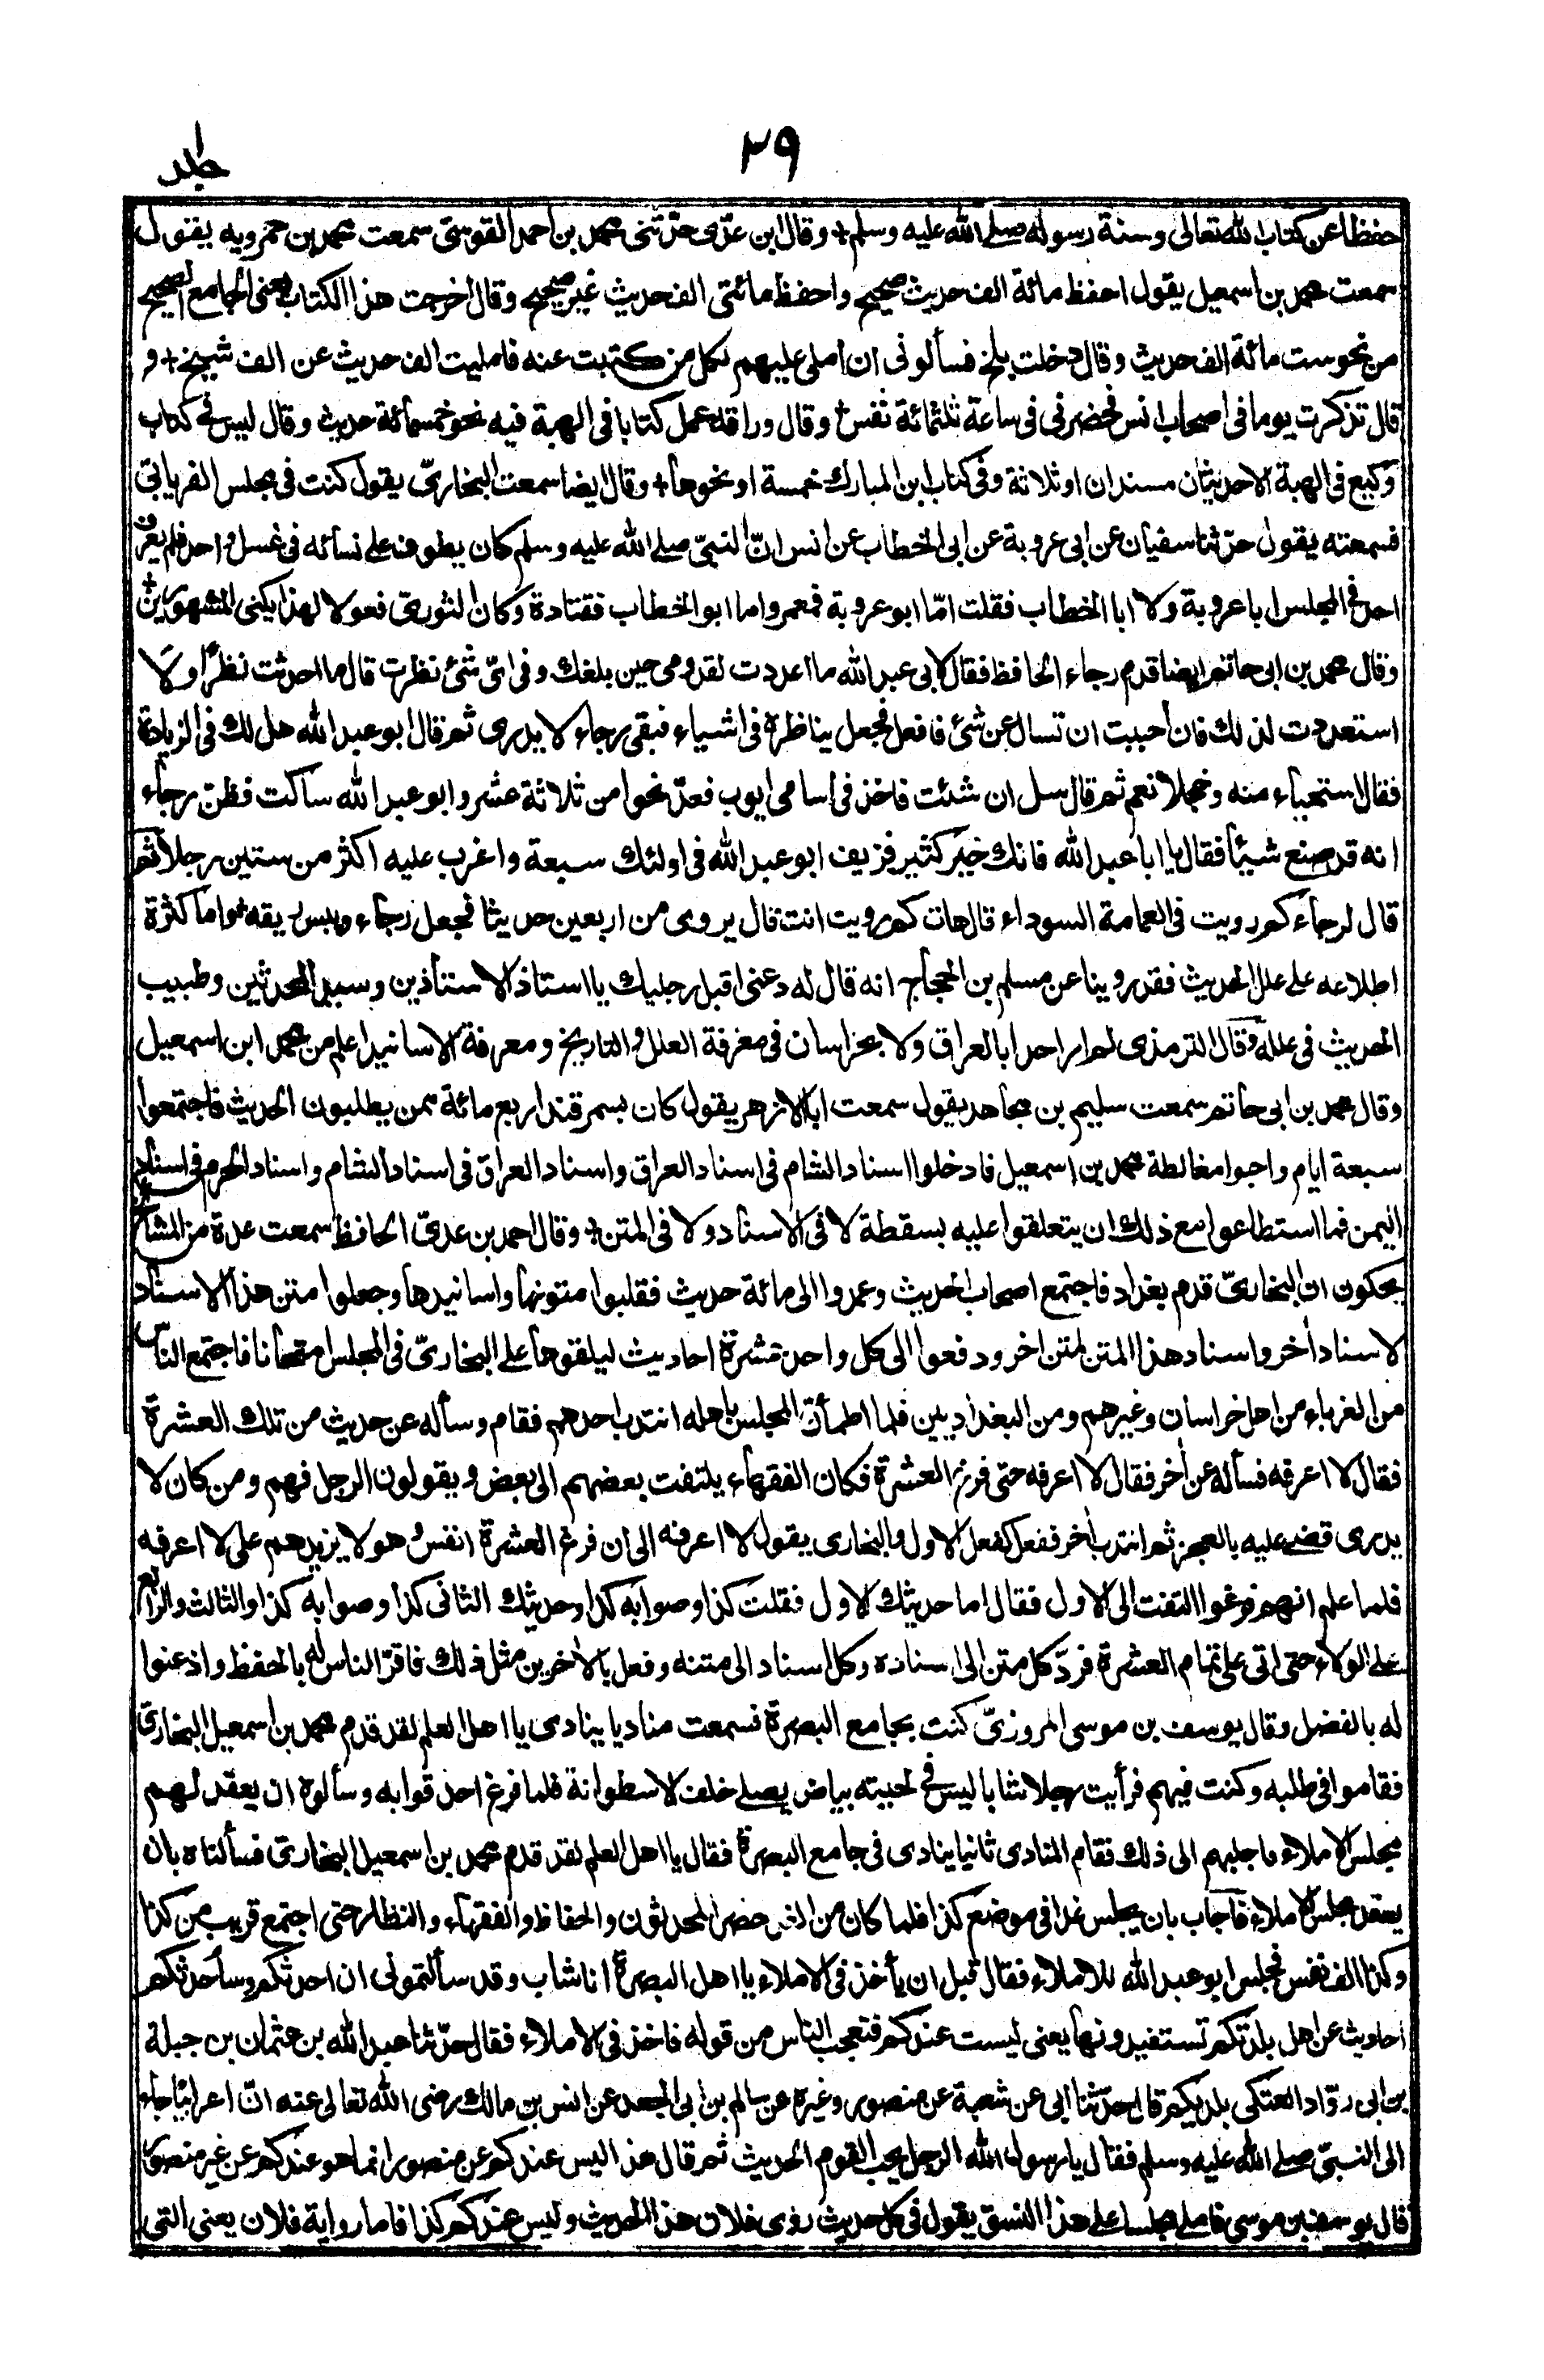 ٢٩
جلد ١
حفظا عن كتاب الله تعالى وسنة رسوله صلى الله عليه وسلم + وقال ابن عدى حدّثنى محمد بن احمد القومسى سمعت محمد بن حمرويه يقول
سمعت محمد بن اسمعيل يقول احفظ مائة الف حديث صحيح واحفظ مائتى الف حديث غير صحيح وقال اخرجت هذا الكتاب يعنى الجامع الصحيح
من نحو ست مائة الف حديث وقال دخلت بلخ فسألونى ان املى عليهم لكل من كتبت عنه فامليت الف حديث عن الف شيخ + و
قال تذكرت يوما فى اصحاب انس فحضرنى فى ساعة ثلثمائة نفس + وقال وراقه عمل كتابا فى الهبة فيه نحو خمسمائة حديث وقال ليس فى كتاب
وكيع فى الهبة الا حديثان مسندان او ثلاثة وفى كتاب ابن المبارك خمسة او نحوها + وقال ايضا سمعت البخارىّ يقول كنت فى مجلس الفريابىّ
فسمعته يقول حدّثنا سفيان عن ابى عروبة عن ابى الخطاب عن انس انّ النبىّ صلى الله عليه وسلم كان يطوف على نسائه فى غسل واحد فلم يعرف
احد فى المجلس ابا عروبة ولا ابا الخطاب فقلت امّا ابو عروبة فمعمر واما ابو الخطاب فقتادة وكان الثورىّ فعولا لهذا يكنى المشهورين +
وقال محمد بن ابى حاتم ايضا قدم رجاء الحافظ فقال لابى عبد الله ما اعددت لقدومى حين بلغك وفى اىّ شئ نظرت قال ما احدثت نظرًا ولا
استعددت لذلك فان احببت ان تسال عن شئ فافعل فجعل يناظره فى اشياء فبقى رجاء لا يدرى ثم قال ابو عبد الله هل لك فى الزيادة
فقال استحياء منه وخجلا نعم ثم قال سل ان شئت فاخذ فى اسامى ايوب فعدّ نحوا من ثلاثة عشر وابو عبد الله ساكت فظن رجاء
انه قد صنع شيئا فقال يا ابا عبد الله فاتك خير كثير فزيف ابو عبد الله فى اولئك سبعة واغرب عليه اكثر من ستين رجلا ثم
قال لرجاء كم رويت فى العمامة السوداء قال هات كم رويت انت قال يروى من اربعين حديثا فخجل رجاء ويبس ريقه + واما كثرة
اطلاعه على علل الحديث فقد روينا عن مسلم بن الحجاج انه قال له دعنى اقبل رجليك يا استاذ الاستاذين وسيد المحدثين وطبيب
الحديث فى علله وقال الترمذى لم ار احدا بالعراق ولا بخراسان فى معرفة العلل والتاريخ ومعرفة الاسانيد اعلم من محمد ابن اسمعيل
وقال محمد بن ابى حاتم سمعت سليم بن مجاهد يقول سمعت ابا الازهر يقول كان بسمرقند اربع مائة ممن يطلبون الحديث فاجتمعوا
سبعة ايام واحبوا مغالطة محمد بن اسمعيل فادخلوا اسناد الشام فى اسناد العراق واسناد العراق فى اسناد الشام واسناد الحرم فى اسناد
اليمن فما استطاعوا مع ذلك ان يتعلقوا عليه بسقطة لا فى الاسناد ولا فى المتن + وقال احمد بن عدىّ الحافظ سمعت عدة من المشايخ
يحكون ان البخارىّ قدم بغداد فاجتمع اصحاب الحديث وعمدوا الى مائة حديث فقلبوا متونها واسانيدها وجعلوا متن هذا الاسناد
لاسناد أخر واسناد هذا المتن لمتن اخر ودفعوا الى كل واحد عشرة احاديث ليلقوها على البخارىّ فى المجلس امتحانا فاجتمع الناس
من الغرباء من اهل خراسان وغيرهم ومن البغداديين فلما اطمأن المجلس باهله انتدب احدهم فقام وسأله عن حديث من تلك العشرة
فقال لا اعرفه فسأله عن أخر فقال لا اعرفه حتى فرغ العشرة فكان الفقهاء يلتفت بعضهم الى بعض ويقولون الرجل فهم ومن كان لا
يدرى قضى عليه بالعجز ثم انتدب أخر ففعل كفعل الاول والبخارى يقول لا اعرفه الى ان فرغ العشرة انفس وهو لا يزيدهم على لا اعرفه
فلما علم انهم فرغوا التفت الى الاول فقال اما حديثك الاول فقلت كذا وصوابه كذا وحديثك الثانى كذا وصوابه كذا والثالث والرابع
على الولاء حتى اتى على تمام العشرة فردّ كل متن الى اسناده وكل اسناد الى متنه وفعل بالأخرين مثل ذلك فاقرّ الناس له بالحفظ واذعنوا
له بالفضل وقال يوسف بن موسى المروزىّ كنت بجامع البصرة فسمعت مناديا ينادى يا اهل العلم لقد قدم محمد بن اسمعيل البخارىّ
فقاموا فى طلبه وكنت فيهم فرأيت رجلا شابا ليس فى لحيته بياض يصلى خلف الاسطوانة فلما فرغ احدقوا به وسألوه ان يعقد لهم
مجلس الاملاء فاجابهم الى ذلك فقام المنادى ثانيا ينادى فى جامع البصرة فقال يا اهل العلم لقد قدم محمد بن اسمعيل البخارىّ فسألناه بان
يعقد مجلس الاملاء فاجاب بان يجلس غدا فى موضع كذا فلما كان من الغد حضر المحدثون والحفاظ والفقهاء والنظار حتى اجتمع قريب من كذا
وكذا الف نفس فجلس ابو عبد الله للاملاء فقال قبل ان يأخذ فى الاملاء يا اهل البصرة انا شاب وقد سألتمونى ان احدثكم وسأحدثكم
احاديث عن اهل بلدتكم تستفيدونها يعنى ليست عندكم فتعجب الناس من قوله فاخذ فى الاملاء فقال حدّثنا عبد الله بن عثمان بن جبلة
بن ابى روّاد العتكى بلديكم قال حدّثنا ابى عن شعبة عن منصور وغيره عن سالم بن ابى الجعد عن انس بن مالك رضى الله تعالى عنه انّ اعرابيّا جاء
الى النبىّ صلى الله عليه وسلم فقال يا رسول الله الرجل يحب القوم الحديث ثم قال هذا ليس عندكم عن منصور انما هو عندكم عن غير منصور
قال يوسف بن موسى فاملى مجلسا على هذا النسق يقول فى كل حديث روى فلان هذا الحديث وليس عندكم كذا فاما رواية فلان يعنى التى